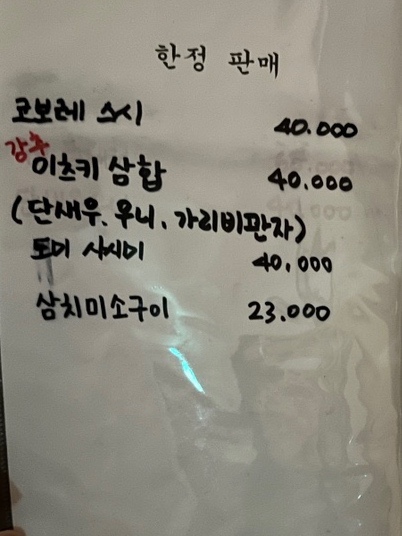 한정 판매
코보레 스시 40.000
강추
이츠키 삼합 40.000
(단새우. 우니. 가리비관자)
도미 사시미 40,000
삼치미소구이 23.000